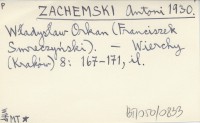 P
ZACHEMSKI Antoni 1930.
Władysław Orkan (Franciszek
Smreczyński). — Wierchy
(Kraków) 8: 167-171, il.
MT*